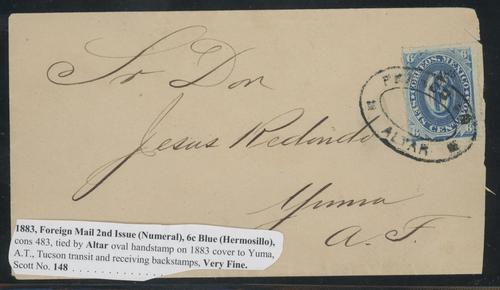 Sr Don
Jesus Redondo
Yuma
A. T.
CORREOS MEXICO
6
SEIS CENTS
ALTAR
1883, Foreign Mail 2nd Issue (Numeral), 6c Blue (Hermosillo),
cons 483, tied by Altar oval handstamp on 1883 cover to Yuma,
A.T., Tucson transit and receiving backstamps, Very Fine.
Scott No. 148 . . . . . . . . . . . . . . . .